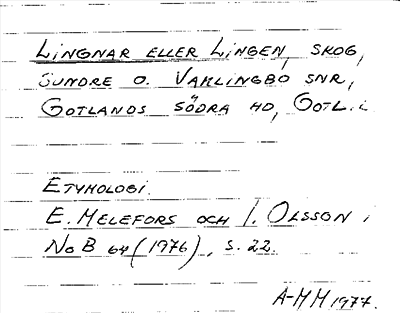 LINGNAR ELLER LINGEN, SKOG,
SUNDRE O. VAMLINGBO SNR,
GOTLANDS SÖDRA HD, GOTL. L.
ETYMOLOGI.
E. MELEFORS OCH I. OLSSON i
NoB 64 (1976), S. 22.
A-MM 1977.